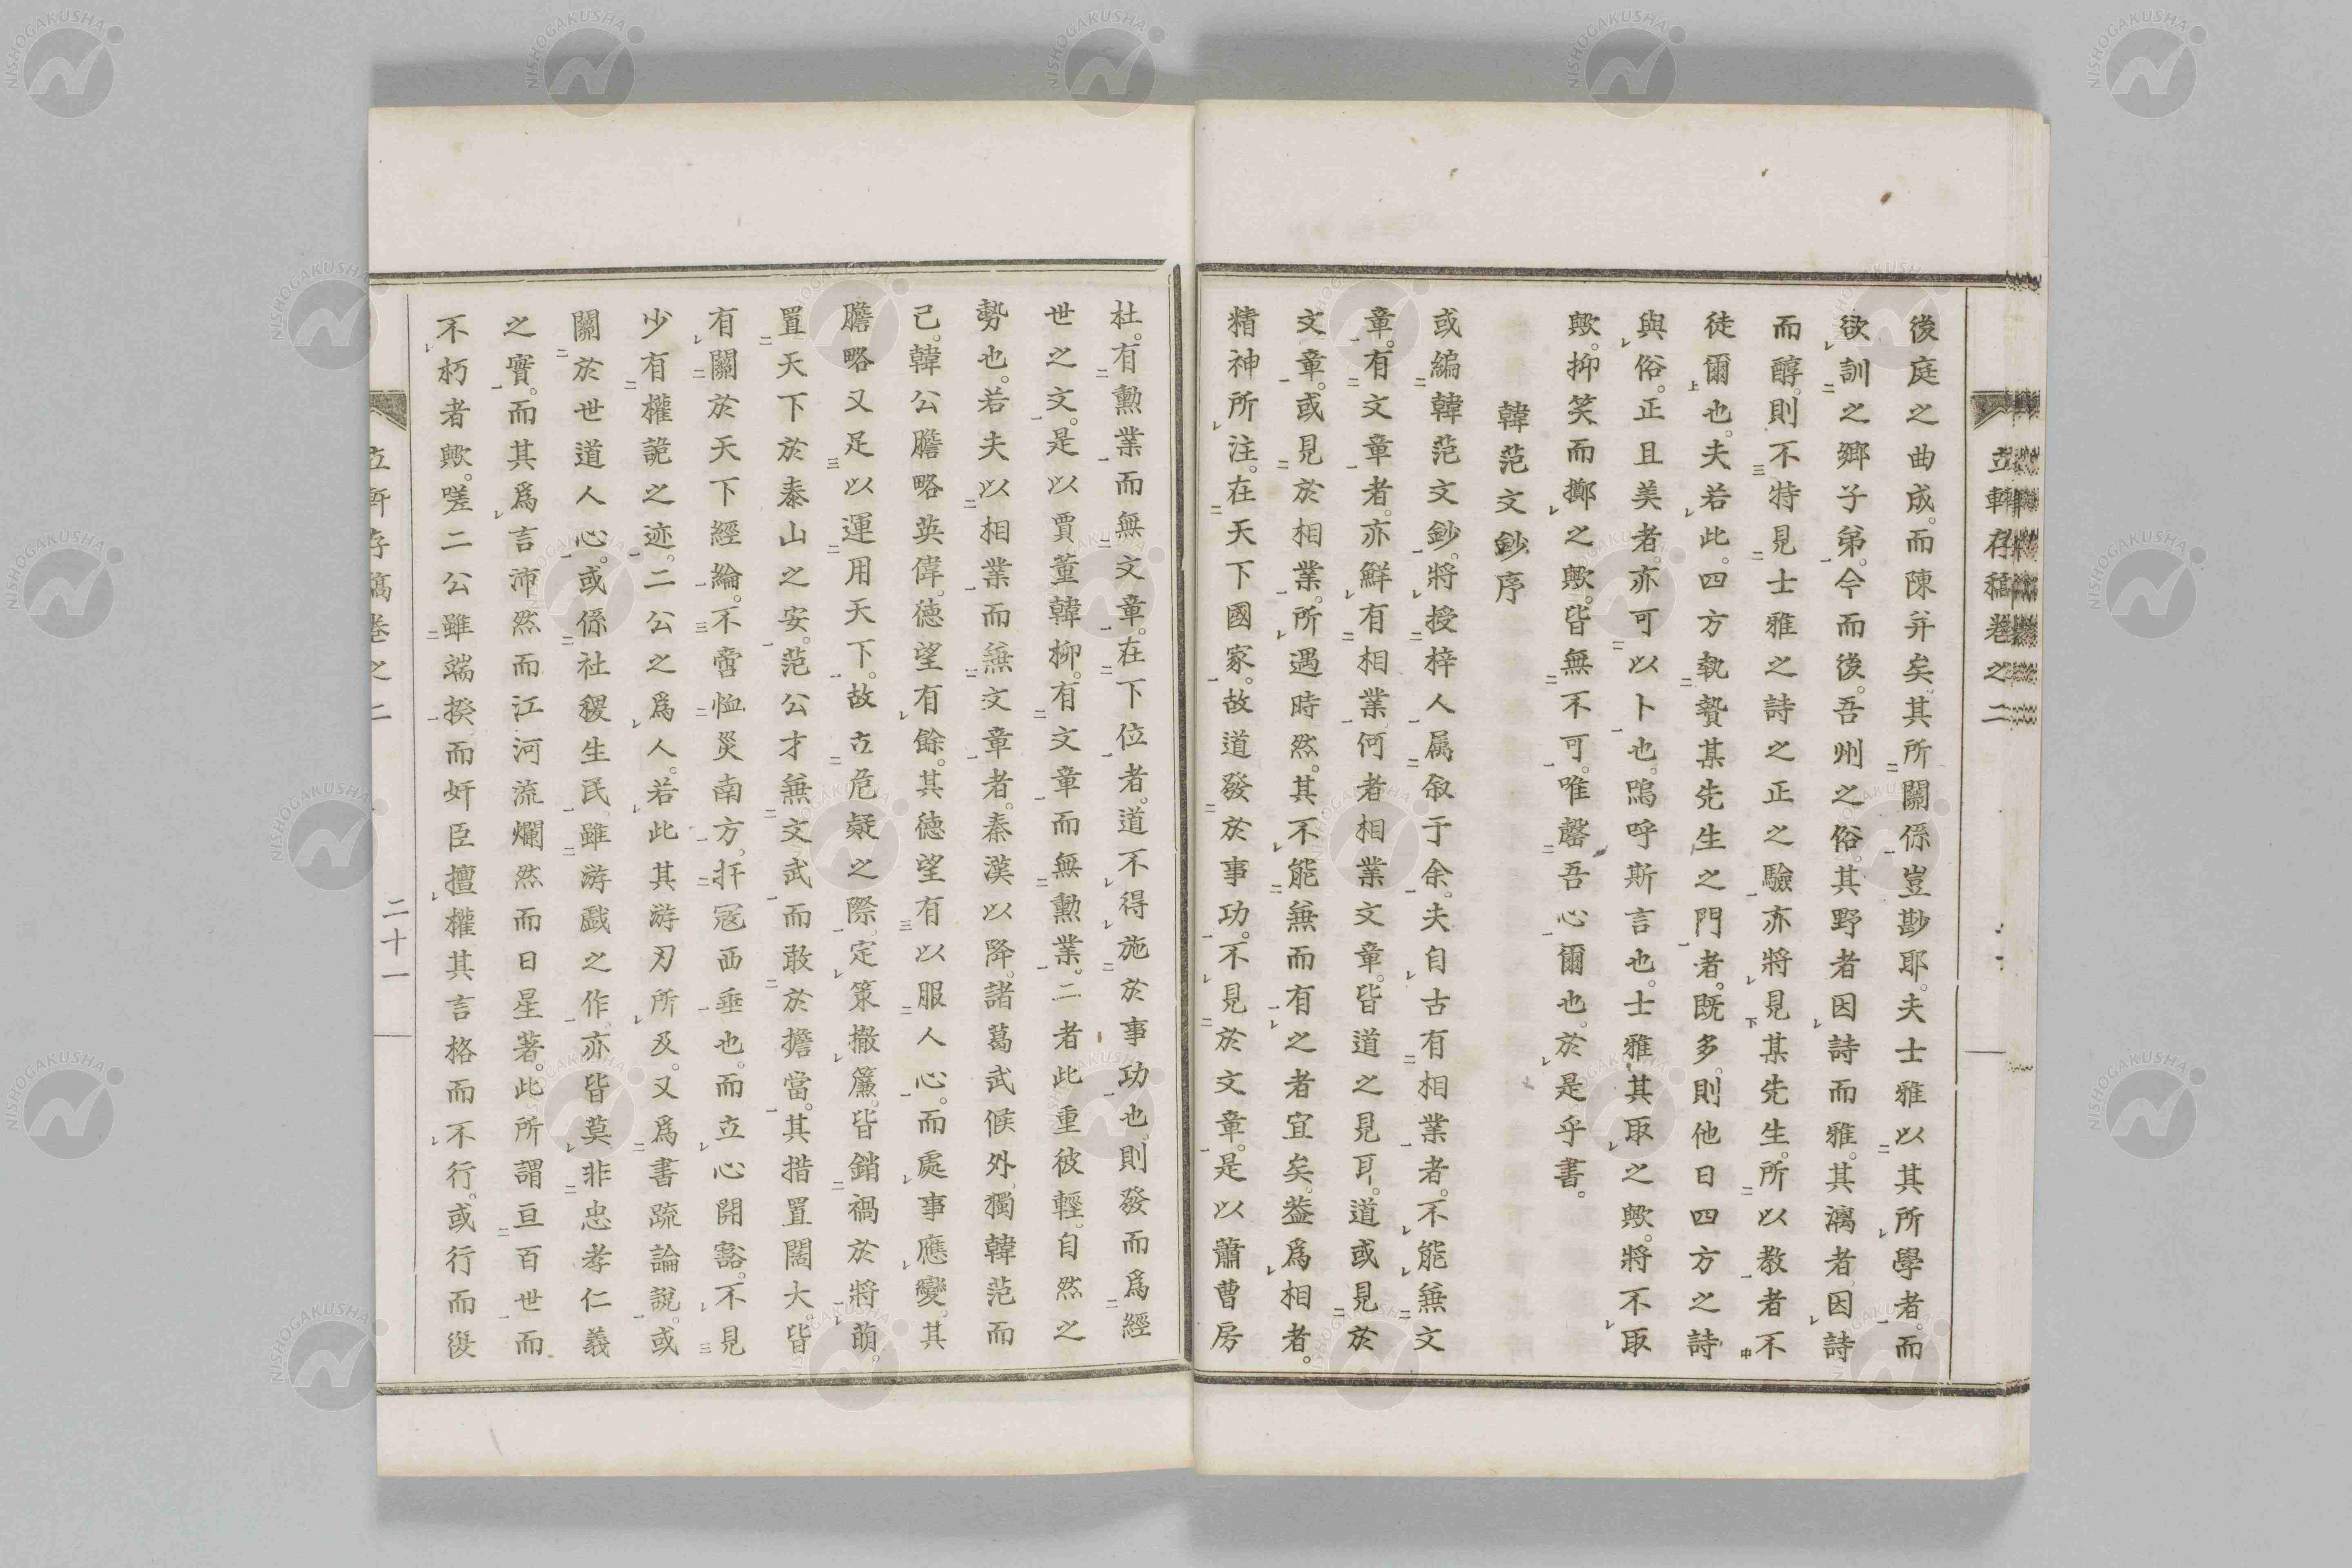 立軒存稿卷之二
後庭之曲成。而陳并矣。其所關係豈尠耶。夫士雅以其所學者。而
欲訓之鄉子弟。今而後。吾州之俗。其野者因詩而雅。其漓者因詩
而醇。則不特見士雅之詩之正之驗。亦將見某先生。所以教者不
徒爾也。夫若此。四方執贄某先生之門者。既多。則他日四方之詩
與俗。正且美者。亦可以卜也。嗚呼斯言也。士雅其取之歟。將不取
歟。抑笑而擲之歟。皆無不可。唯罄吾心爾也。於是乎書。
韓范文鈔序
或編韓范文鈔。將授梓人。屬敘于余。夫自古有相業者。不能無文
章。有文章者。亦鮮有相業。何者相業文章。皆道之見耳。道或見於
文章。或見於相業。所遇時然。其不能無而有之者宜矣。蓋爲相者。
精神所注。在天下國家。故道發於事功。不見於文章。是以蕭曹房
杜。有勳業而無文章。在下位者。道不得施於事功也。則發而爲經
世之文。是以賈董韓柳。有文章而無勳業。二者此重彼輕。自然之
勢也。若夫以相業而無文章者。秦漢以降。諸葛武候外。獨韓范而
己。韓公膽略英偉。德望有餘。其德望有以服人心。而處事應變。其
膽略又足以運用天下。故立危疑之際。定策撤簾。皆銷禍於將萌。
置天下於泰山之安。范公才無文武。而敢於擔當。其措置闊大。皆
有關於天下經綸。不啻恤災南方。扞寇西垂也。而立心開豁。不見
少有權詭之迹。二公之爲人。若此其游刃所及。又爲書疏論說。或
關於世道人心。或係社稷生民。雖游戲之作。亦皆莫非忠孝仁義
之實。而其爲言沛然而江河流爛然而日星著。此所謂亘百世而
不朽者歟。嗟二公雖端揆。而奸臣擅權其言格而不行。或行而復
立軒存稿卷之二
二十一